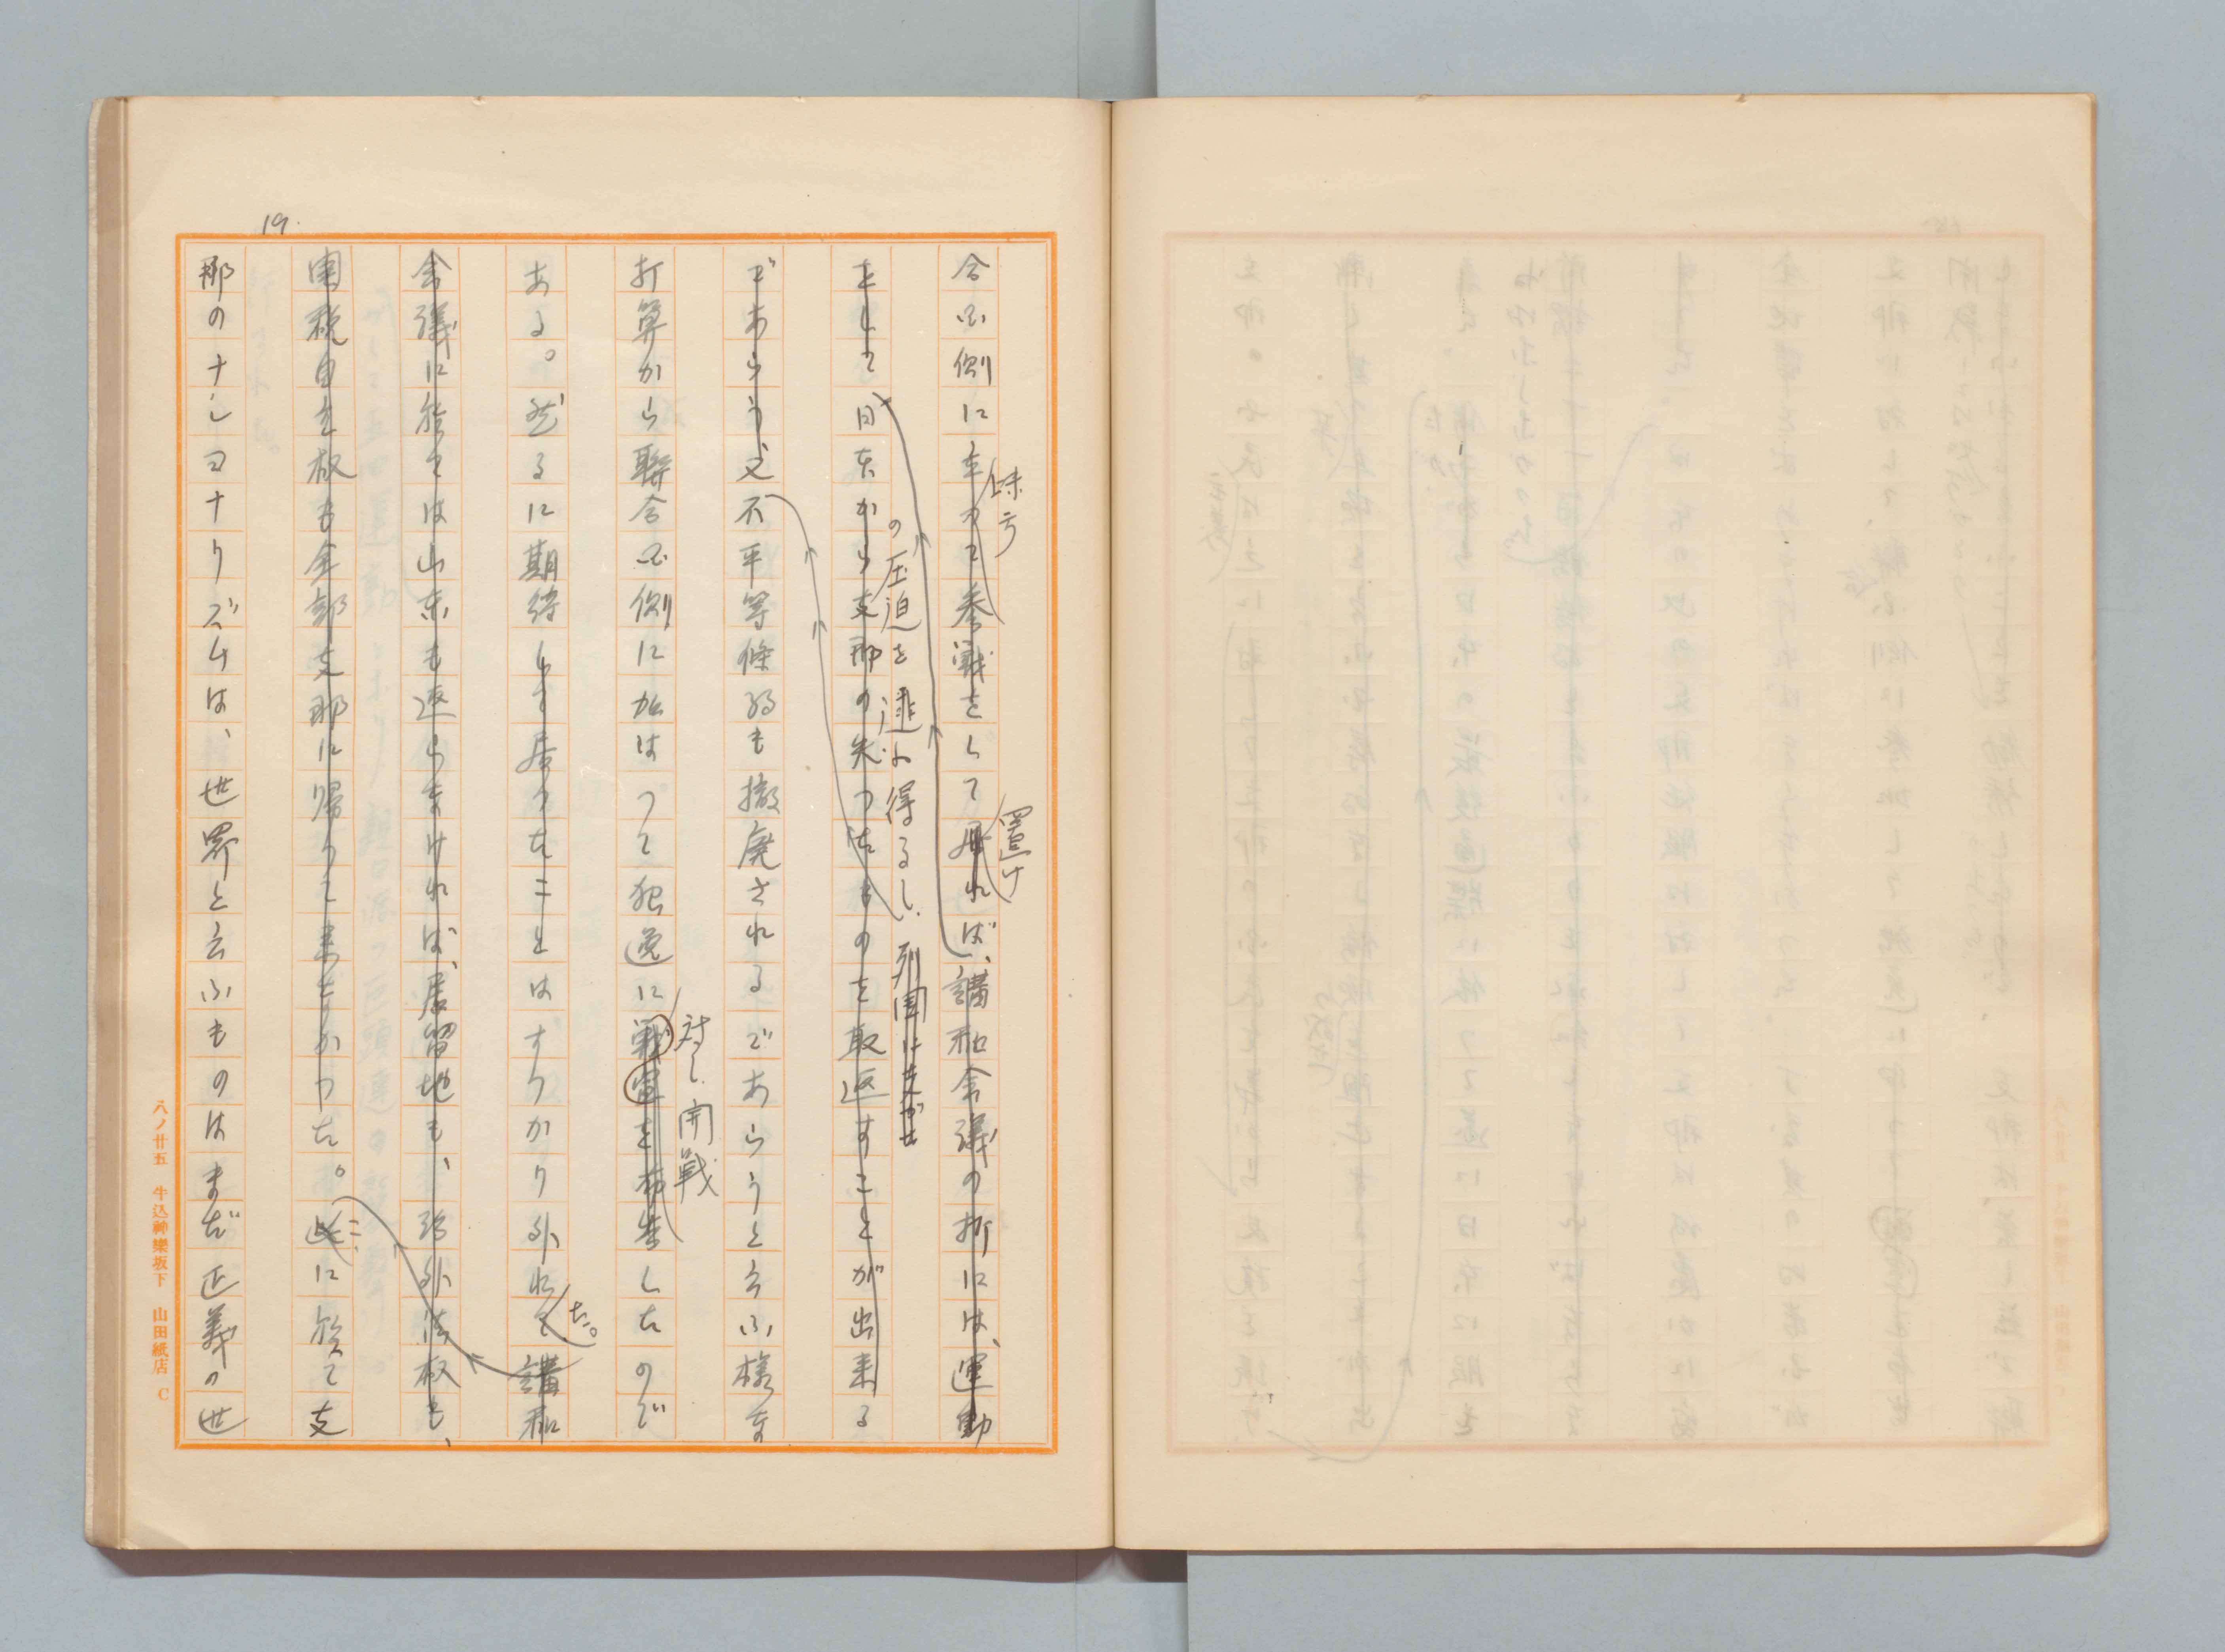 19.
合国側に立つて参戦をして居れば、講和会議の折には、運動
味方
置け
をして日本から支那の失つたものを取返すことが出来る
の圧迫を逃れ得るし、列国に
であらう、又不平等條約も撤廃されるであらうと云ふ様な
打算から聯合国側に加はつて独逸に戦宣を布告したので
対し開戦
ある。然るに期待して居つたことはすつかり外れて、講和
た。
会議に於ては山東も還らなければ、居留地も、治外法権も、
関税自主権も全部支那に帰つて来なかつた。此に於て支
こゝ
那のナショナリズムは、世界と云ふものはまだ正義の世
八ノ廿五 牛込神樂坂下 山田紙店 C